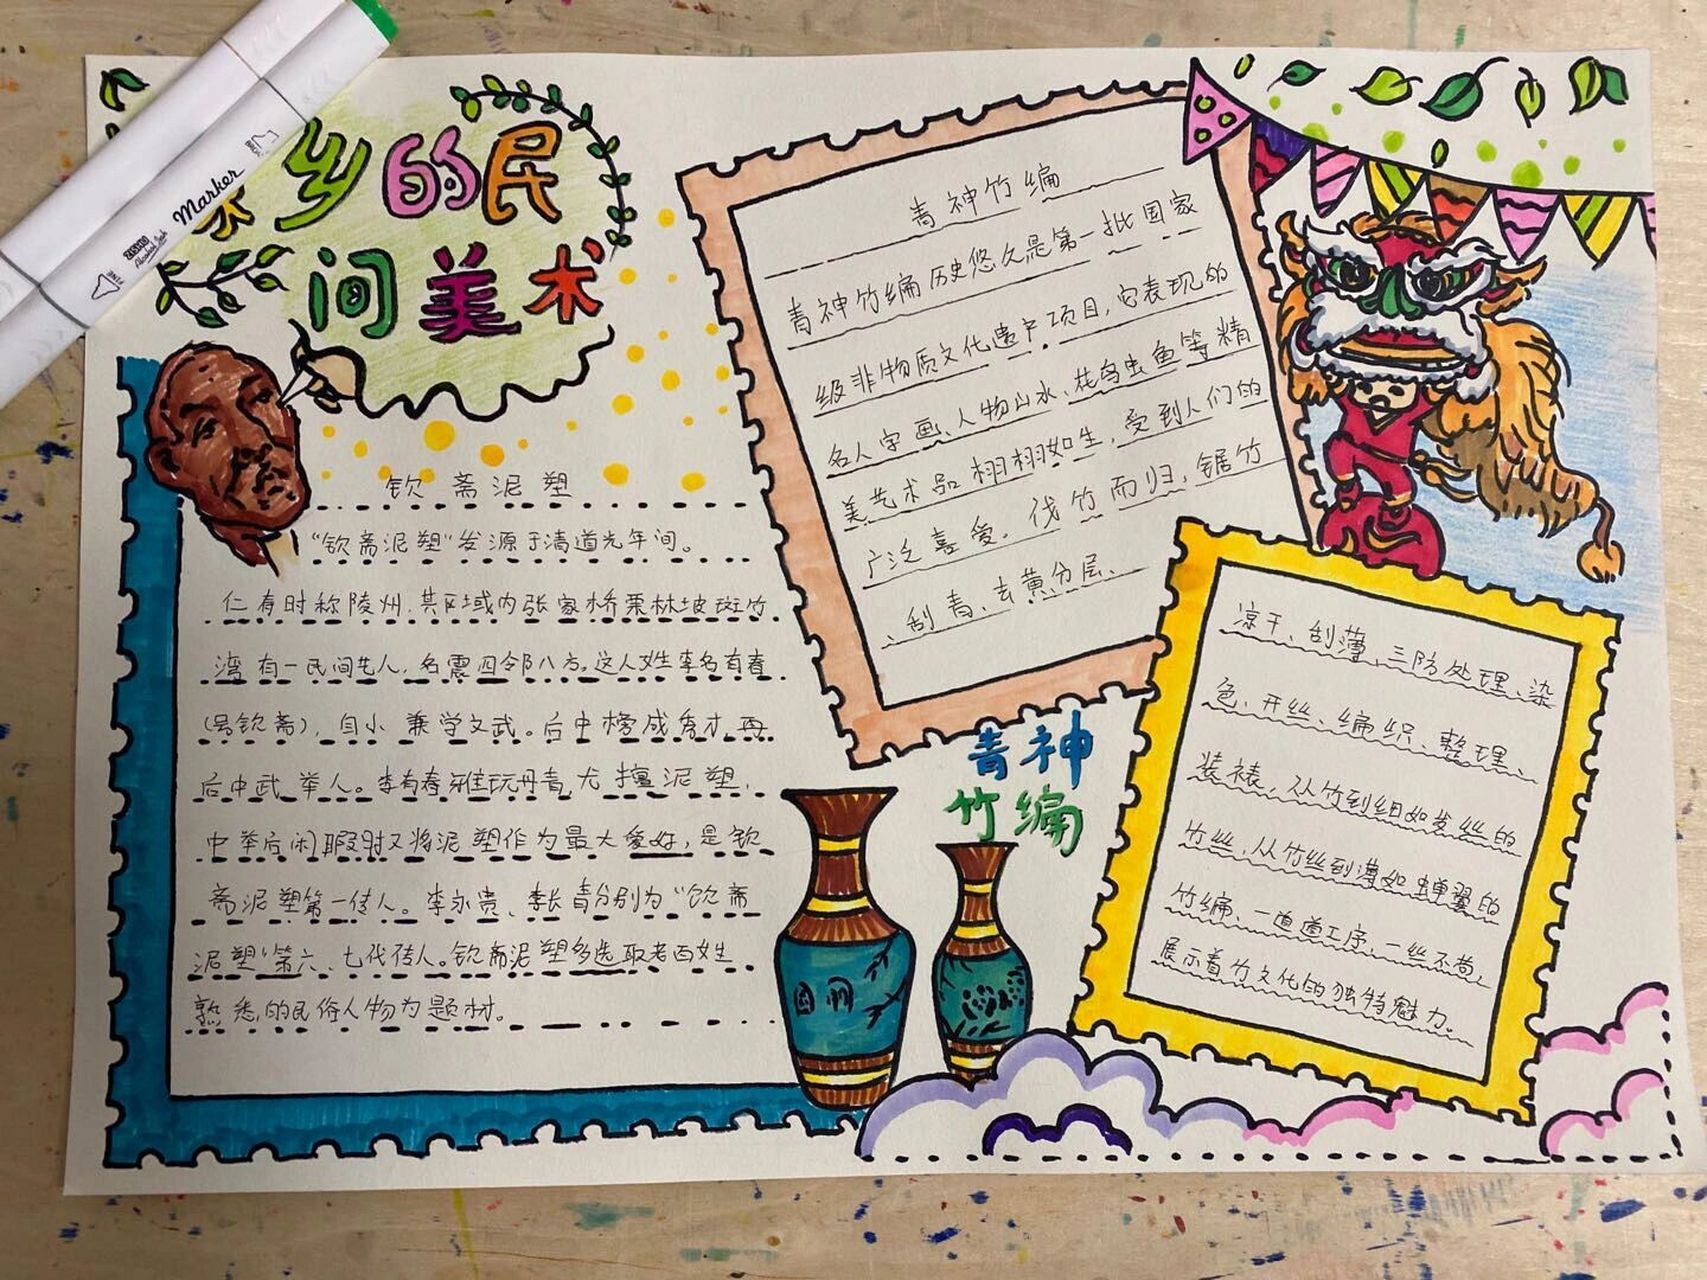 乡的民
间美术
Marker
钦斋泥塑
“钦斋泥塑”发源于清道光年间。
仁寿时称陵州,其区域内张家桥栗林坡斑竹
湾有一民间艺人,名震四邻八方。这人姓李名有春
(号钦斋),自小兼学文武。后中榜成秀才,再
后中武举人。李有春雅玩丹青,尤擅泥塑,
中举后闲暇时又将泥塑作为最大爱好,是钦
斋泥塑第一传人。李永贵、李长青分别为“钦斋
泥塑”第六、七代传人。钦斋泥塑多选取老百姓
熟悉的民俗人物为题材。
青神竹编
青神竹编历史悠久是第一批国家
级非物质文化遗产项目,它表现的
名人字画、人物山水、花鸟虫鱼等精
美艺术品栩栩如生,受到人们的
广泛喜爱。伐竹而归,锯竹
、刮青、去黄分层、
凉干、刮薄、三防处理、染
色、开丝、编织、整理、
装裱,从竹到细如发丝的
竹丝,从竹丝到薄如蝉翼的
竹编、一道道工序,一丝不苟,
展示着竹文化的独特魅力。
青神
竹编